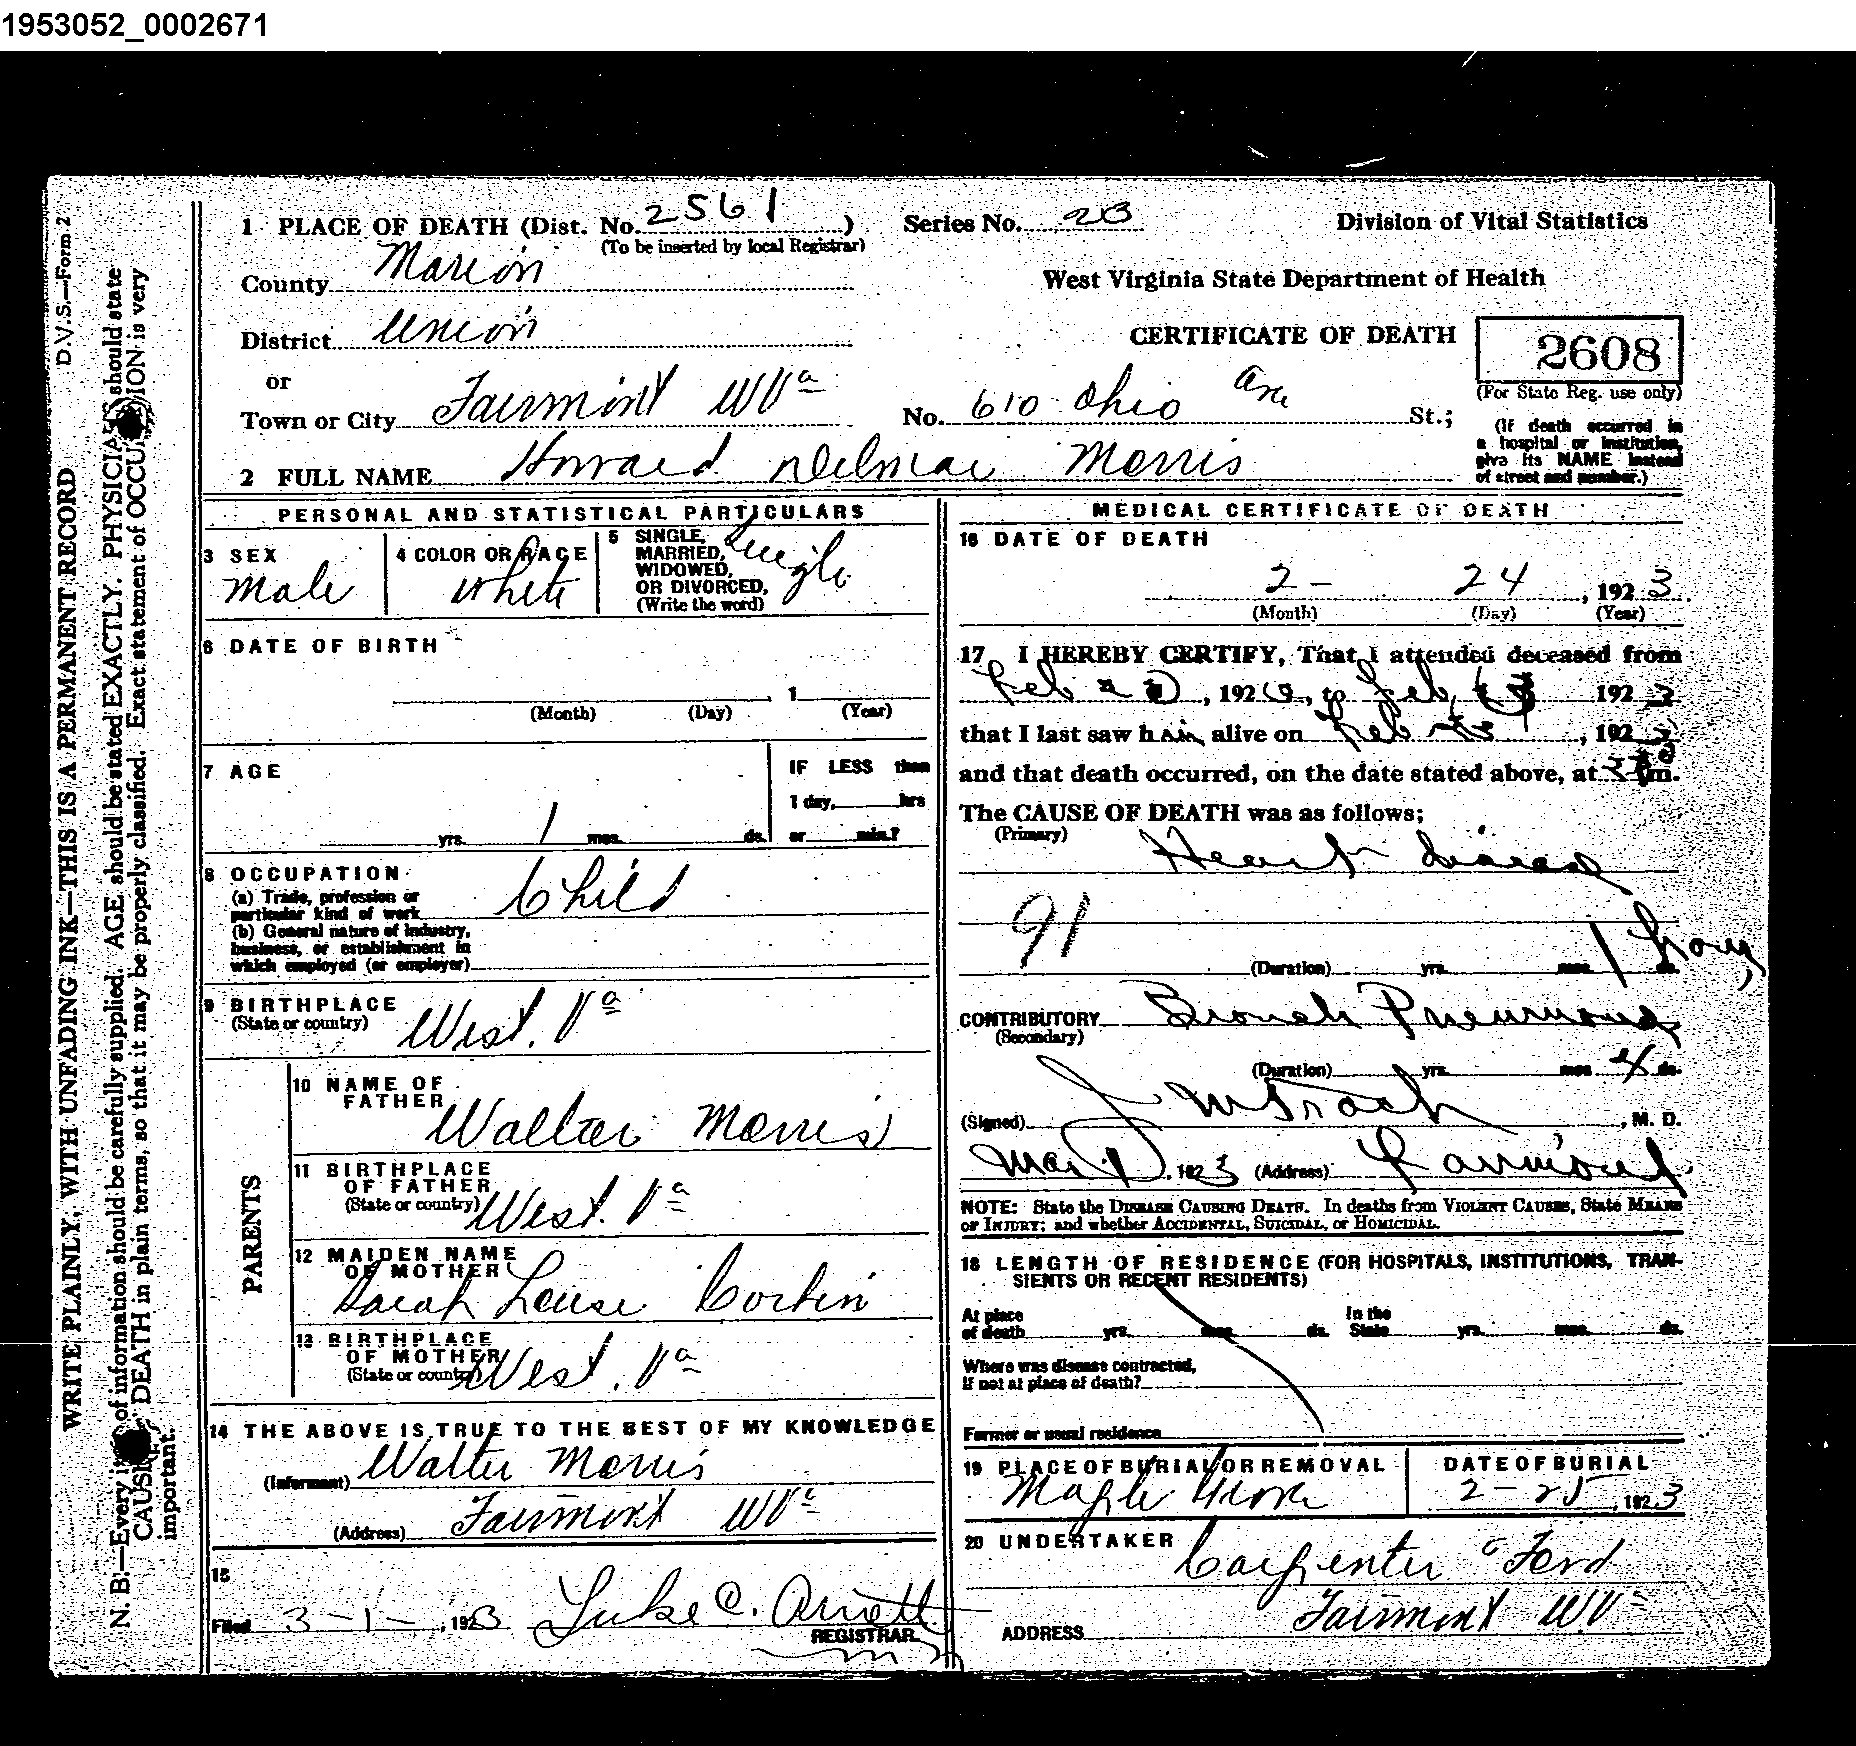 1953052_0002671
D.V.S.—Form 2
WRITE PLAINLY, WITH UNFADING INK—THIS IS A PERMANENT RECORD
N. B.—Every it of information should be carefully supplied. AGE should be stated EXACTLY. PHYSICIA should state
CAUSE DEATH in plain terms, so that it may be properly classified. Exact statement of OCCU ION is very
important.
1 PLACE OF DEATH (Dist. No. 2561 ) Series No. 23 Division of Vital Statistics
(To be inserted by local Registrar)
County Marion
West Virginia State Department of Health
District Union
CERTIFICATE OF DEATH 2608
(For State Reg. use only)
or
Town or City Fairmont WVa No. 610 Ohio Ave St.;
(If death occurred in
a hospital or institution,
give its NAME instead
of street and number.)
2 FULL NAME Howard Delmar Morris
PERSONAL AND STATISTICAL PARTICULARS
3 SEX
Male
4 COLOR OR RACE
White
5 SINGLE,
MARRIED,
WIDOWED,
OR DIVORCED,
(Write the word)
Single
6 DATE OF BIRTH
1
(Month) (Day) (Year)
7 AGE
IF LESS than
1 day, hrs
or min.?
yrs. 1 mos. ds.
8 OCCUPATION
(a) Trade, profession or
particular kind of work
Child
(b) General nature of industry,
business, or establishment in
which employed (or employer)
9 BIRTHPLACE
(State or country) West. Va
PARENTS
10 NAME OF
FATHER
Walter Morris
11 BIRTHPLACE
OF FATHER
(State or country) West. Va
12 MAIDEN NAME
OF MOTHER
Sarah Louise Corbin
13 BIRTHPLACE
OF MOTHER
(State or country) West. Va
14 THE ABOVE IS TRUE TO THE BEST OF MY KNOWLEDGE
(Informant) Walter Morris
(Address) Fairmont WVa
15
Filed 3-1-, 1923 Luke C. Arnett
REGISTRAR
MEDICAL CERTIFICATE OF DEATH
16 DATE OF DEATH
2- 24, 1923
(Month) (Day) (Year)
17 I HEREBY CERTIFY, That I attended deceased from
Feb 20, 1923, to Feb, 1923
that I last saw him alive on Feb, 1923
and that death occurred, on the date stated above, at m.
The CAUSE OF DEATH was as follows;
(Primary)
Heart disease
91
(Duration) yrs. mos. 1 hour ds.
CONTRIBUTORY Bronch Pneumonia
(Secondary)
(Duration) yrs. mos. 4 ds.
(Signed) J M Trach, M. D.
Mar 1, 1923 (Address) Fairmont
NOTE: State the DISEASE CAUSING DEATH. In deaths from VIOLENT CAUSES, State MEANS
OF INJURY; and whether ACCIDENTAL, SUICIDAL, or HOMICIDAL.
18 LENGTH OF RESIDENCE (FOR HOSPITALS, INSTITUTIONS, TRAN-
SIENTS OR RECENT RESIDENTS)
At place
of death yrs. mos. ds.
In the
State yrs. mos. ds.
Where was disease contracted,
If not at place of death?
Former or usual residence
19 PLACE OF BURIAL OR REMOVAL
Maple Grove
DATE OF BURIAL
2-25, 1923
20 UNDERTAKER
Carpenter & Ford
Fairmont WV
ADDRESS